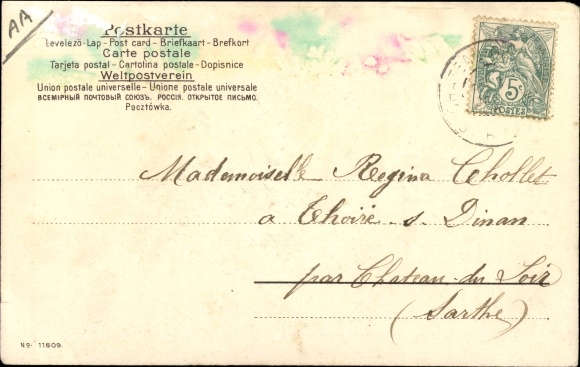 AA
Postkarte
Levelező-Lap - Post card - Briefkaart - Brefkort
Carte postale
Tarjeta postal - Cartolina postale - Dopisnice
Weltpostverein
Union postale universelle - Unione postale universale
ВСЕМІРНЫЙ ПОЧТОВЫЙ СОЮЗЪ. РОССІЯ. ОТКРЫТОЕ ПИСЬМО.
Pocztówka.
5c
POSTES
Mademoiselle Regina Chollet
a Thoiré s. Dinan
par Chateau du Loir
(Sarthe)
No. 11609.